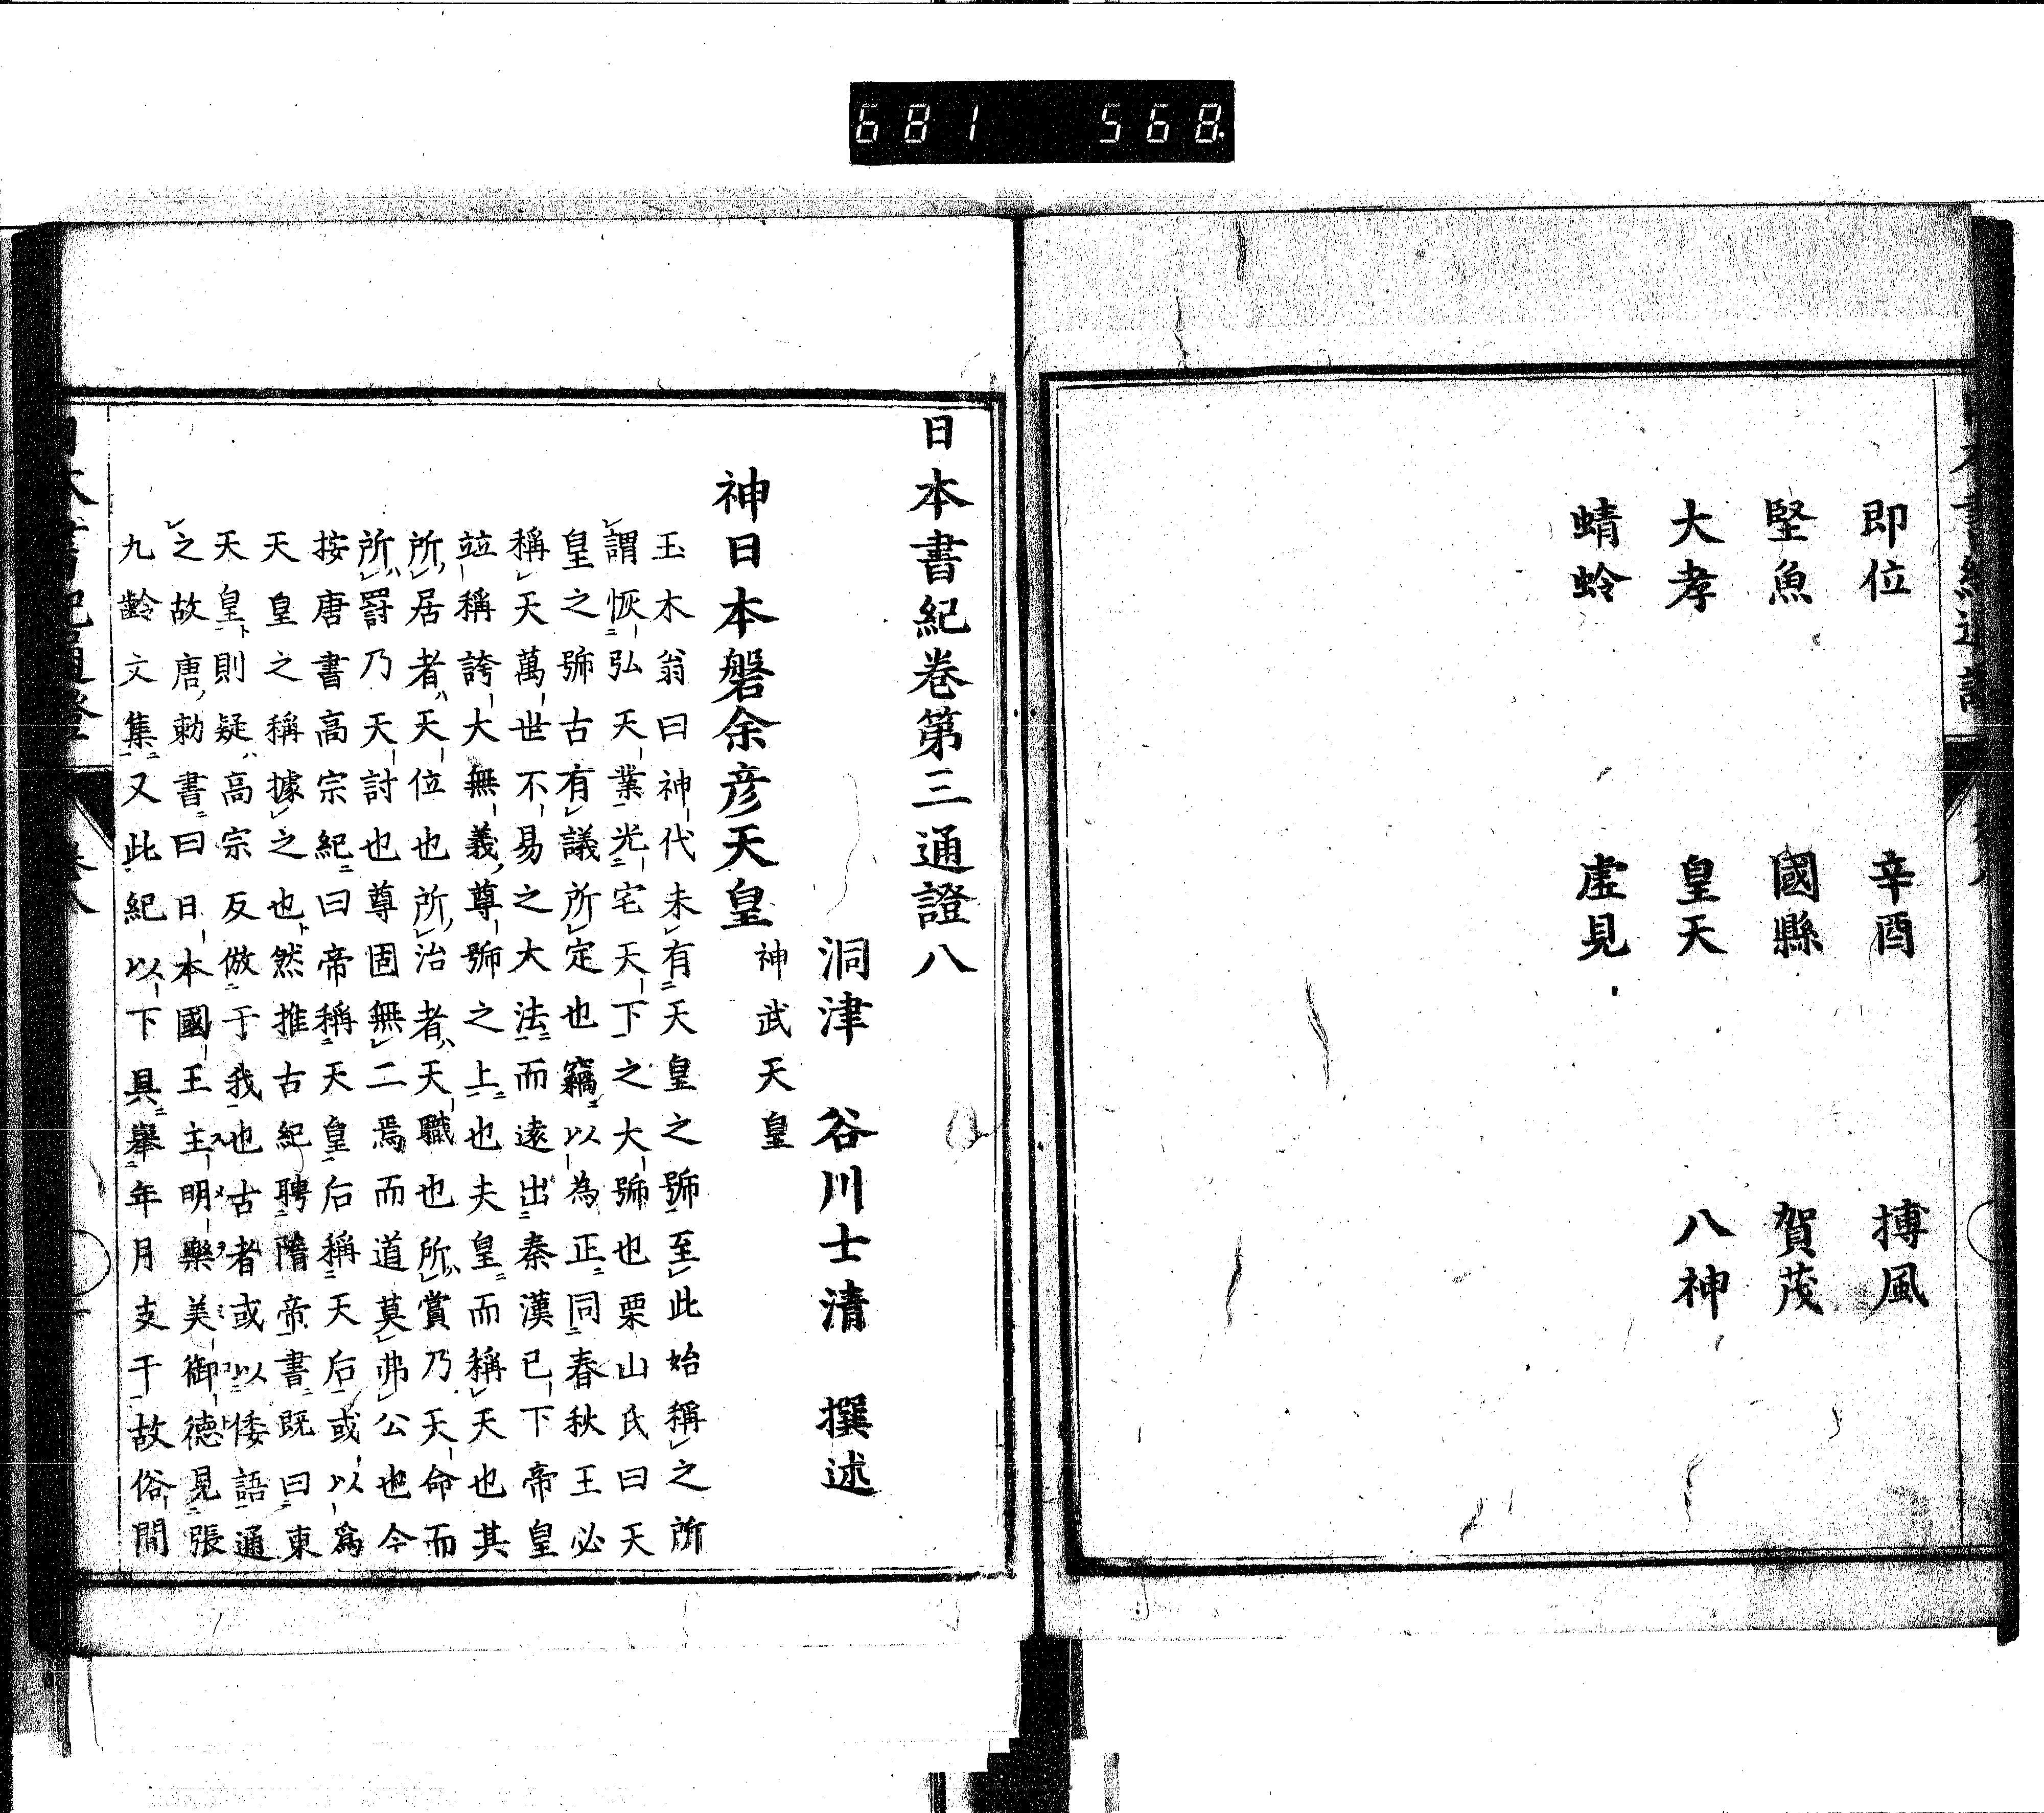 681 568
即位 辛酉 搏風
堅魚 國縣 賀茂
大孝 皇天 八神
蜻蛉 虛見
日本書紀卷第三通證八
洞津 谷川士清 撰述
神日本磐余彦天皇 神武天皇
玉木翁曰神代未有天皇之號至此始稱之所
謂恢弘天業光宅天下之大號也栗山氏曰天
皇之號古有議所定也竊以為正同春秋王必
稱天萬世不易之大法而遠出秦漢已下帝皇
竝稱誇大無義尊號之上也夫皇而稱天也其
所居者天位也所治者天職也所賞乃天命而
所罸乃天討也尊固無二焉而道莫弗公也今
按唐書高宗紀曰帝稱天皇后稱天后或以爲
天皇之稱據之也然推古紀聘隋帝書既曰東
天皇則疑高宗反倣于我也古者或以倭語通
之故唐勅書曰日本國王主明樂美御德見張
九齡文集又此紀以下具舉年月支干故俗間